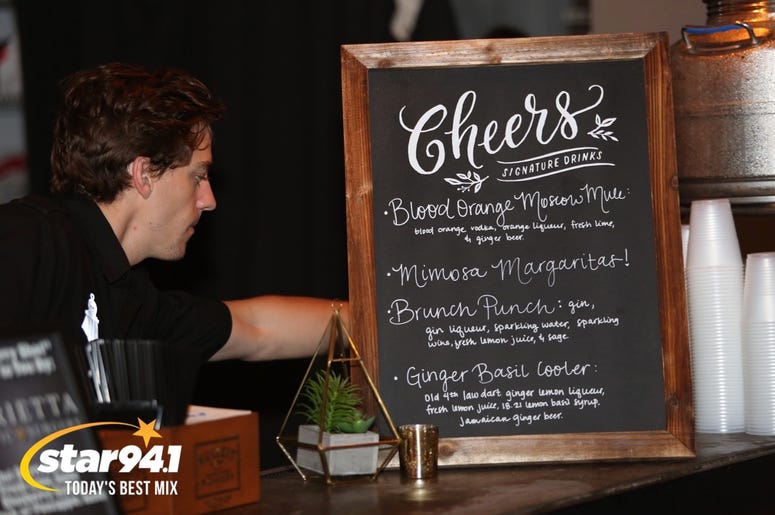 Cheers
SIGNATURE DRINKS
· Blood Orange Moscow Mule:
blood orange vodka, orange liqueur, fresh lime,
& ginger beer.
· Mimosa Margaritas!
· Brunch Punch: gin,
gin liqueur, sparkling water, sparkling
wine, fresh lemon juice, & sage.
· Ginger Basil Cooler:
Old 4th law dart ginger lemon liqueur,
fresh lemon juice, 18.21 lemon basil syrup,
Jamaican ginger beer.
RIETTA
star94.1
TODAY'S BEST MIX